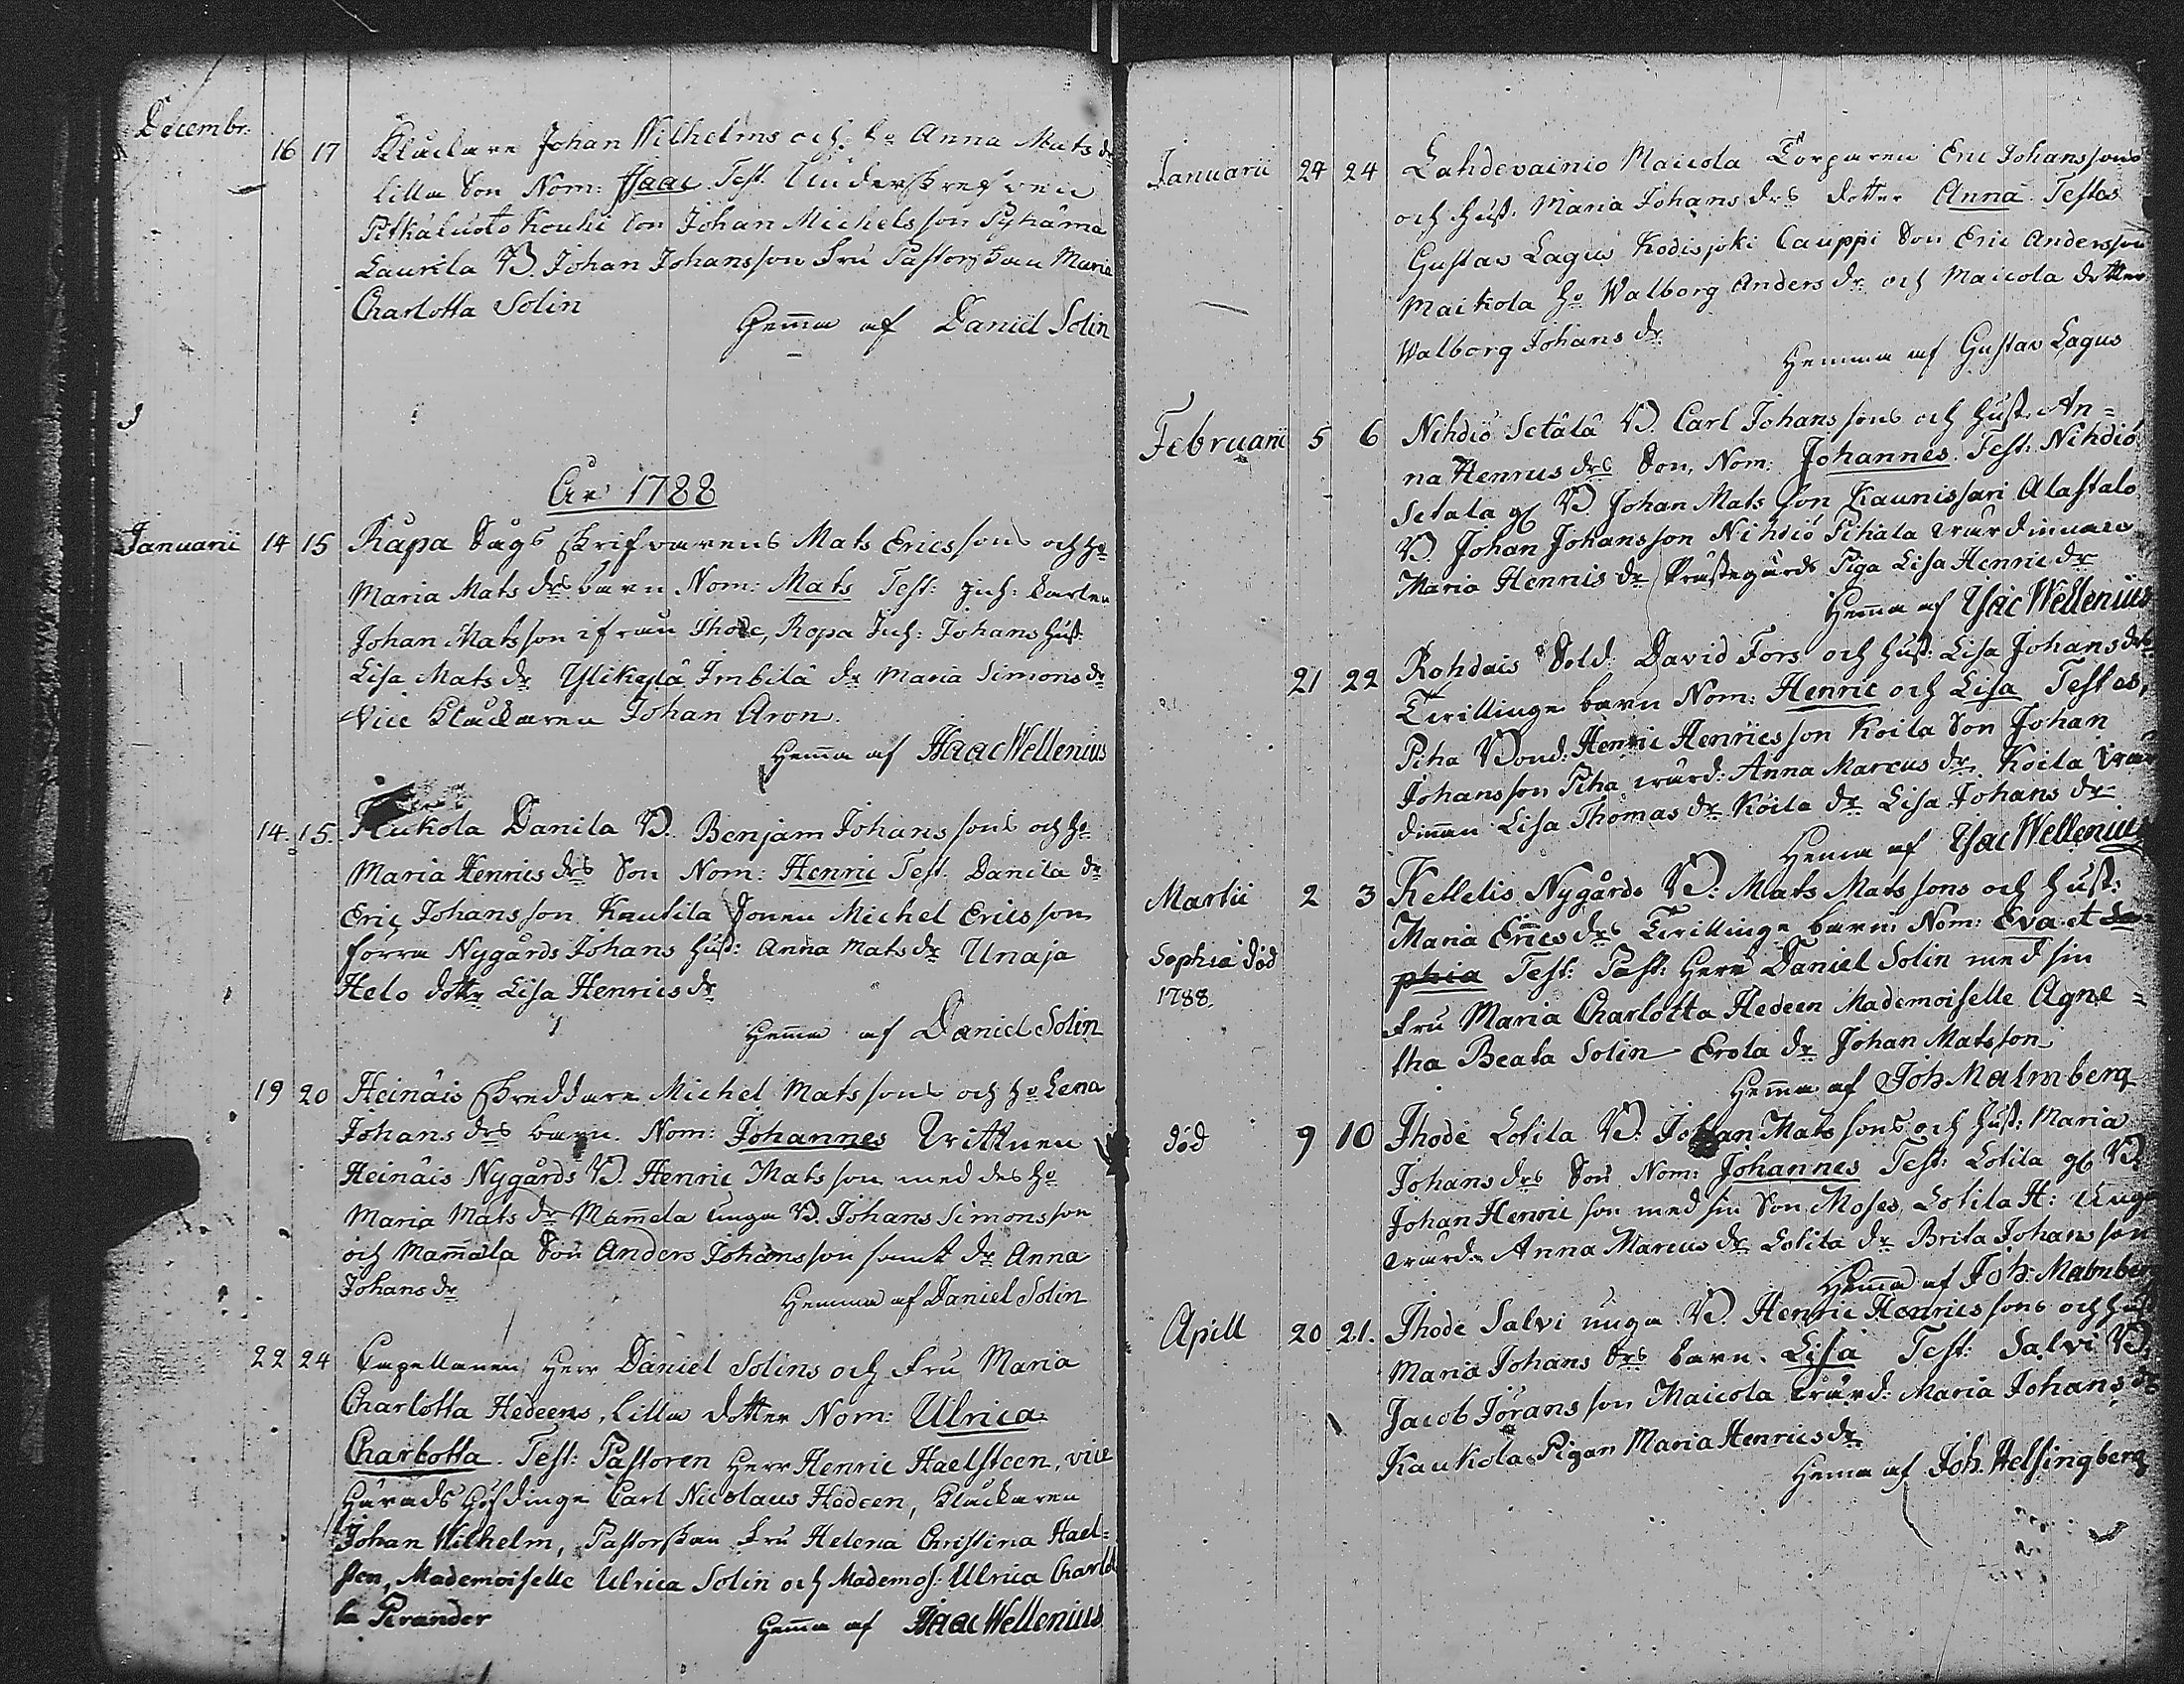 Decembr:
16 17 Kläckare Johan Wilhelms och ho Anna Mats dr
lilla Son Nom: Isaac Test. Underskrefven
Pitkäluoto Kouhi Son Johan Michelsson Pyhäma
Laurila B. Johan Johansson Fru Pastorskan Maria
Charlotta Solin
Hemma af Daniel Solin
År 1788
Januarii 14 15 Råpa Sågs skrifvarens Mats Ericssons och ho
Maria Mats drs barn Nom: Mats Test: Inh: karlen
Johan Matsson ifrån Ihode, Ropa Inh: Johans hust.
Lisa Mats dr Ylikylä Imbilä dr Maria Simons dr
Vice Kläckaren Johan Aron.
Hemma af Isaac Wellenius
14. 15. Kukola Danila B. Benjam Johanssons och ho
Maria Henrics drs Son Nom: Henric Test. Danila dr
Eric Johansson Knutila Sonen Michel Ericsson
förra Nygårds Johans hust: Anna Mats dr Unaja
Helo dotter Lisa Henrics dr
Hemma af Daniel Solin
19 20 Heinäis skreddare Michel Matssons och ho Lena
Johans drs barn. Nom: Johannes Vittnen
Heinäis Nygårds B. Henric Matsson med des ho
Maria Mats dr Mamela unga B. Johans Simonsson
och Mammäla Son Anders Johansson samt dr Anna
Johans dr
Hemma af Daniel Solin
22 24 Capellanen Herr Daniel Solins och Fru Maria
Charlotta Hedeens, lilla dotter Nom: Ulrica
Charlotta. Test: Pastoren Herr Henric Haelsteen, vice
Härads Höfdinge Carl Nicolaus Hedeen, Kläckaren
Johan Wilhelm, Pastorskan Fru Helena Christina Hael=
sten, Mademoiselle Ulrica Solin och Mademos: Ulrica Charlot
ta Pirander
Hemma af Isaac Wellenius
Januarii 24 24 Lahdevainio Maicola Torparen Eric Johanssons
och hust. Maria Johans drs dotter Anna. Testes
Gustav Lagus Kodisjoki Cauppi Son Eric Andersson
Maikola ho Walborg Anders dr och Maicola dotter
Walborg Johans dr
Hemma af Gustav Lagus
Februarii 5 6 Nihdiö Setälä B. Carl Johanssons och hust. An=
na Henrics drs Son, Nom: Johannes. Test: Nihdiö
Setala gb B. Johan Matsson Kaunissari Alastalo
B. Johan Johansson Nihdiö Pihala värdinnan
Maria Henrics dr Prästegårds Piga Lisa Henric dr
Hemma af Isac Wellenius
21 22 Rohdais Sold: David Fors och hust: Lisa Johans drs
Tvillinge barn Nom: Henric och Lisa Testes,
Piha Bond: Henric Henricsson Koila Son Johan
Johansson Piha värd: Anna Marcus dr. Koila värd
dinnan Lisa Thomas dr Koila dr Lisa Johans dr
Hemma af Isac Wellenius
Martii 2 3 Kellelis Nygårds B: Mats Matssons och hust:
Maria Erics drs Tvillinge barn Nom: Eva et So=
Sophia död
1788.
phia Test: Past: Herr Daniel Solin med sin
Fru Maria Charlotta Hedeen Mademoiselle Agne=
tha Beata Solin Erola dr Johan Matsson
Hemma af Joh Malmberg
död 9 10 Ihode Lotila B: Johan Matssons och hust: Maria
Johans drs Son Nom: Johannes Test: Lotila gb B.
Johan Henricson med sin Son Moses, Lotila H: Unga
värd: Anna Marcus dr Lotila dr Brita Johansson
Hemma af Joh: Malmberg
Apill 20 21. Ihode Salvi unga B. Henric Henricssons och hust
Maria Johans drs barn. Lisa Test: Salvi B.
Jacob Jöransson Maicola värd: Maria Johans dr
Kaukola Pigan Maria Henrics dr
Hemma af Joh. Helsingberg